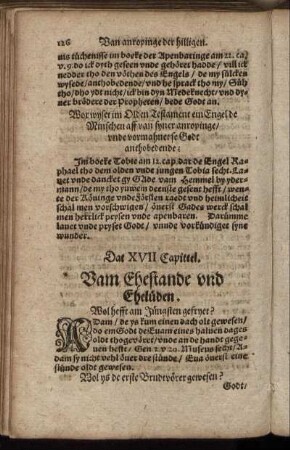 126 Van anropinge der hilligen.
nis tüchenisse im boeke der Apenbaringe am 22. ca.
v. 9. do ick outh geseen vnde gehöret hadde / vill ick
nedder tho den vöthen des Engels / de my sülcken
wysede / anthobedende / vnd he sprack tho my / Süh
tho / dho ydt nicht / ick bin dyn Medeknecht vnd dy-
ner brödere der Propheten / bede Godt an.
Wor wyset im Olden Testament ein Engel de
Minschen aff van syner anropinge /
vnde vormahnet se Godt
anthobedende:
Im boeke Tobie am 12. cap. dar de Engel Ra-
phael tho dem olden vnde jungen Tobia secht. La-
uet vnde dancket gy Gade vam Hemmel by yder-
mann / de my tho yuwem deenste gesent hefft / wen-
te der Köninge vnde Försten raedt vnd heimlicheit
schal men vorschwigen / överst Gades werck schal
men herrlick prysen vnde apenbaren. Darümme
lauet vnde pryset Godt / vnnde vorkündiget syne
wunder.
Dat XVII Capittel.
Vam Ehestande vnd
Ehelüden.
Wol hefft am Jüngsten gefryet?
Adam / de ys kum einen dach olt gewesen /
do em Godt de Euam eines haluen dages
olde thogevöret / vnde an de handt gege-
uen hefft / Gen. 2. v. 20. Museus secht / A-
dam sy nicht vehl öuer dre stünde / Eua öuerst eine
stünde oldt gewesen.
Wol ys de erste Brudtvörer gewesen?
Godt /